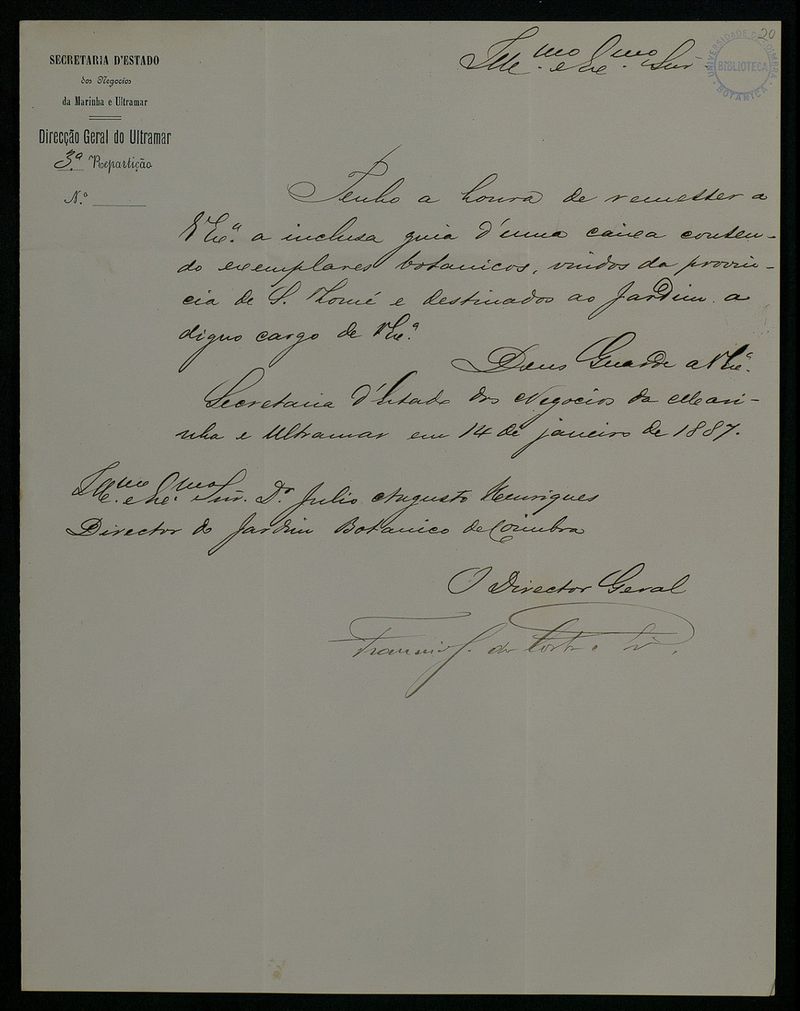 20
UNIVERSIDADE DE COIMBRA
BIBLIOTECA
BOTANICA
SECRETARIA D'ESTADO
dos Negocios
da Marinha e Ultramar
Direcção Geral do Ultramar
3.ª Repartição
N.º
Ill.mo e Ex.mo Snr
Tenho a honra de remetter a
V Ex.ª a inclusa guia d'uma caixa conten-
do exemplares botanicos, vindos da provin-
cia de S. Thomé e destinados ao Jardim a
digno cargo de V Ex.ª
Deus Guarde a V Ex.ª
Secretaria d'Estado dos Negocios da Mari-
nha e Ultramar em 14 de janeiro de 1887.
Ill.mo e Ex.mo Snr. Dr Julio Augusto Henriques
Director do Jardim Botanico de Coimbra
O Director Geral
Francisco J. da Costa e Sª.